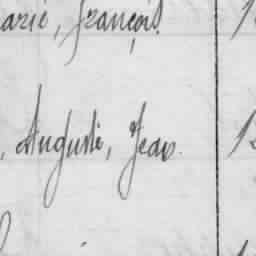 arie, françois.
, Auguste, Jean.